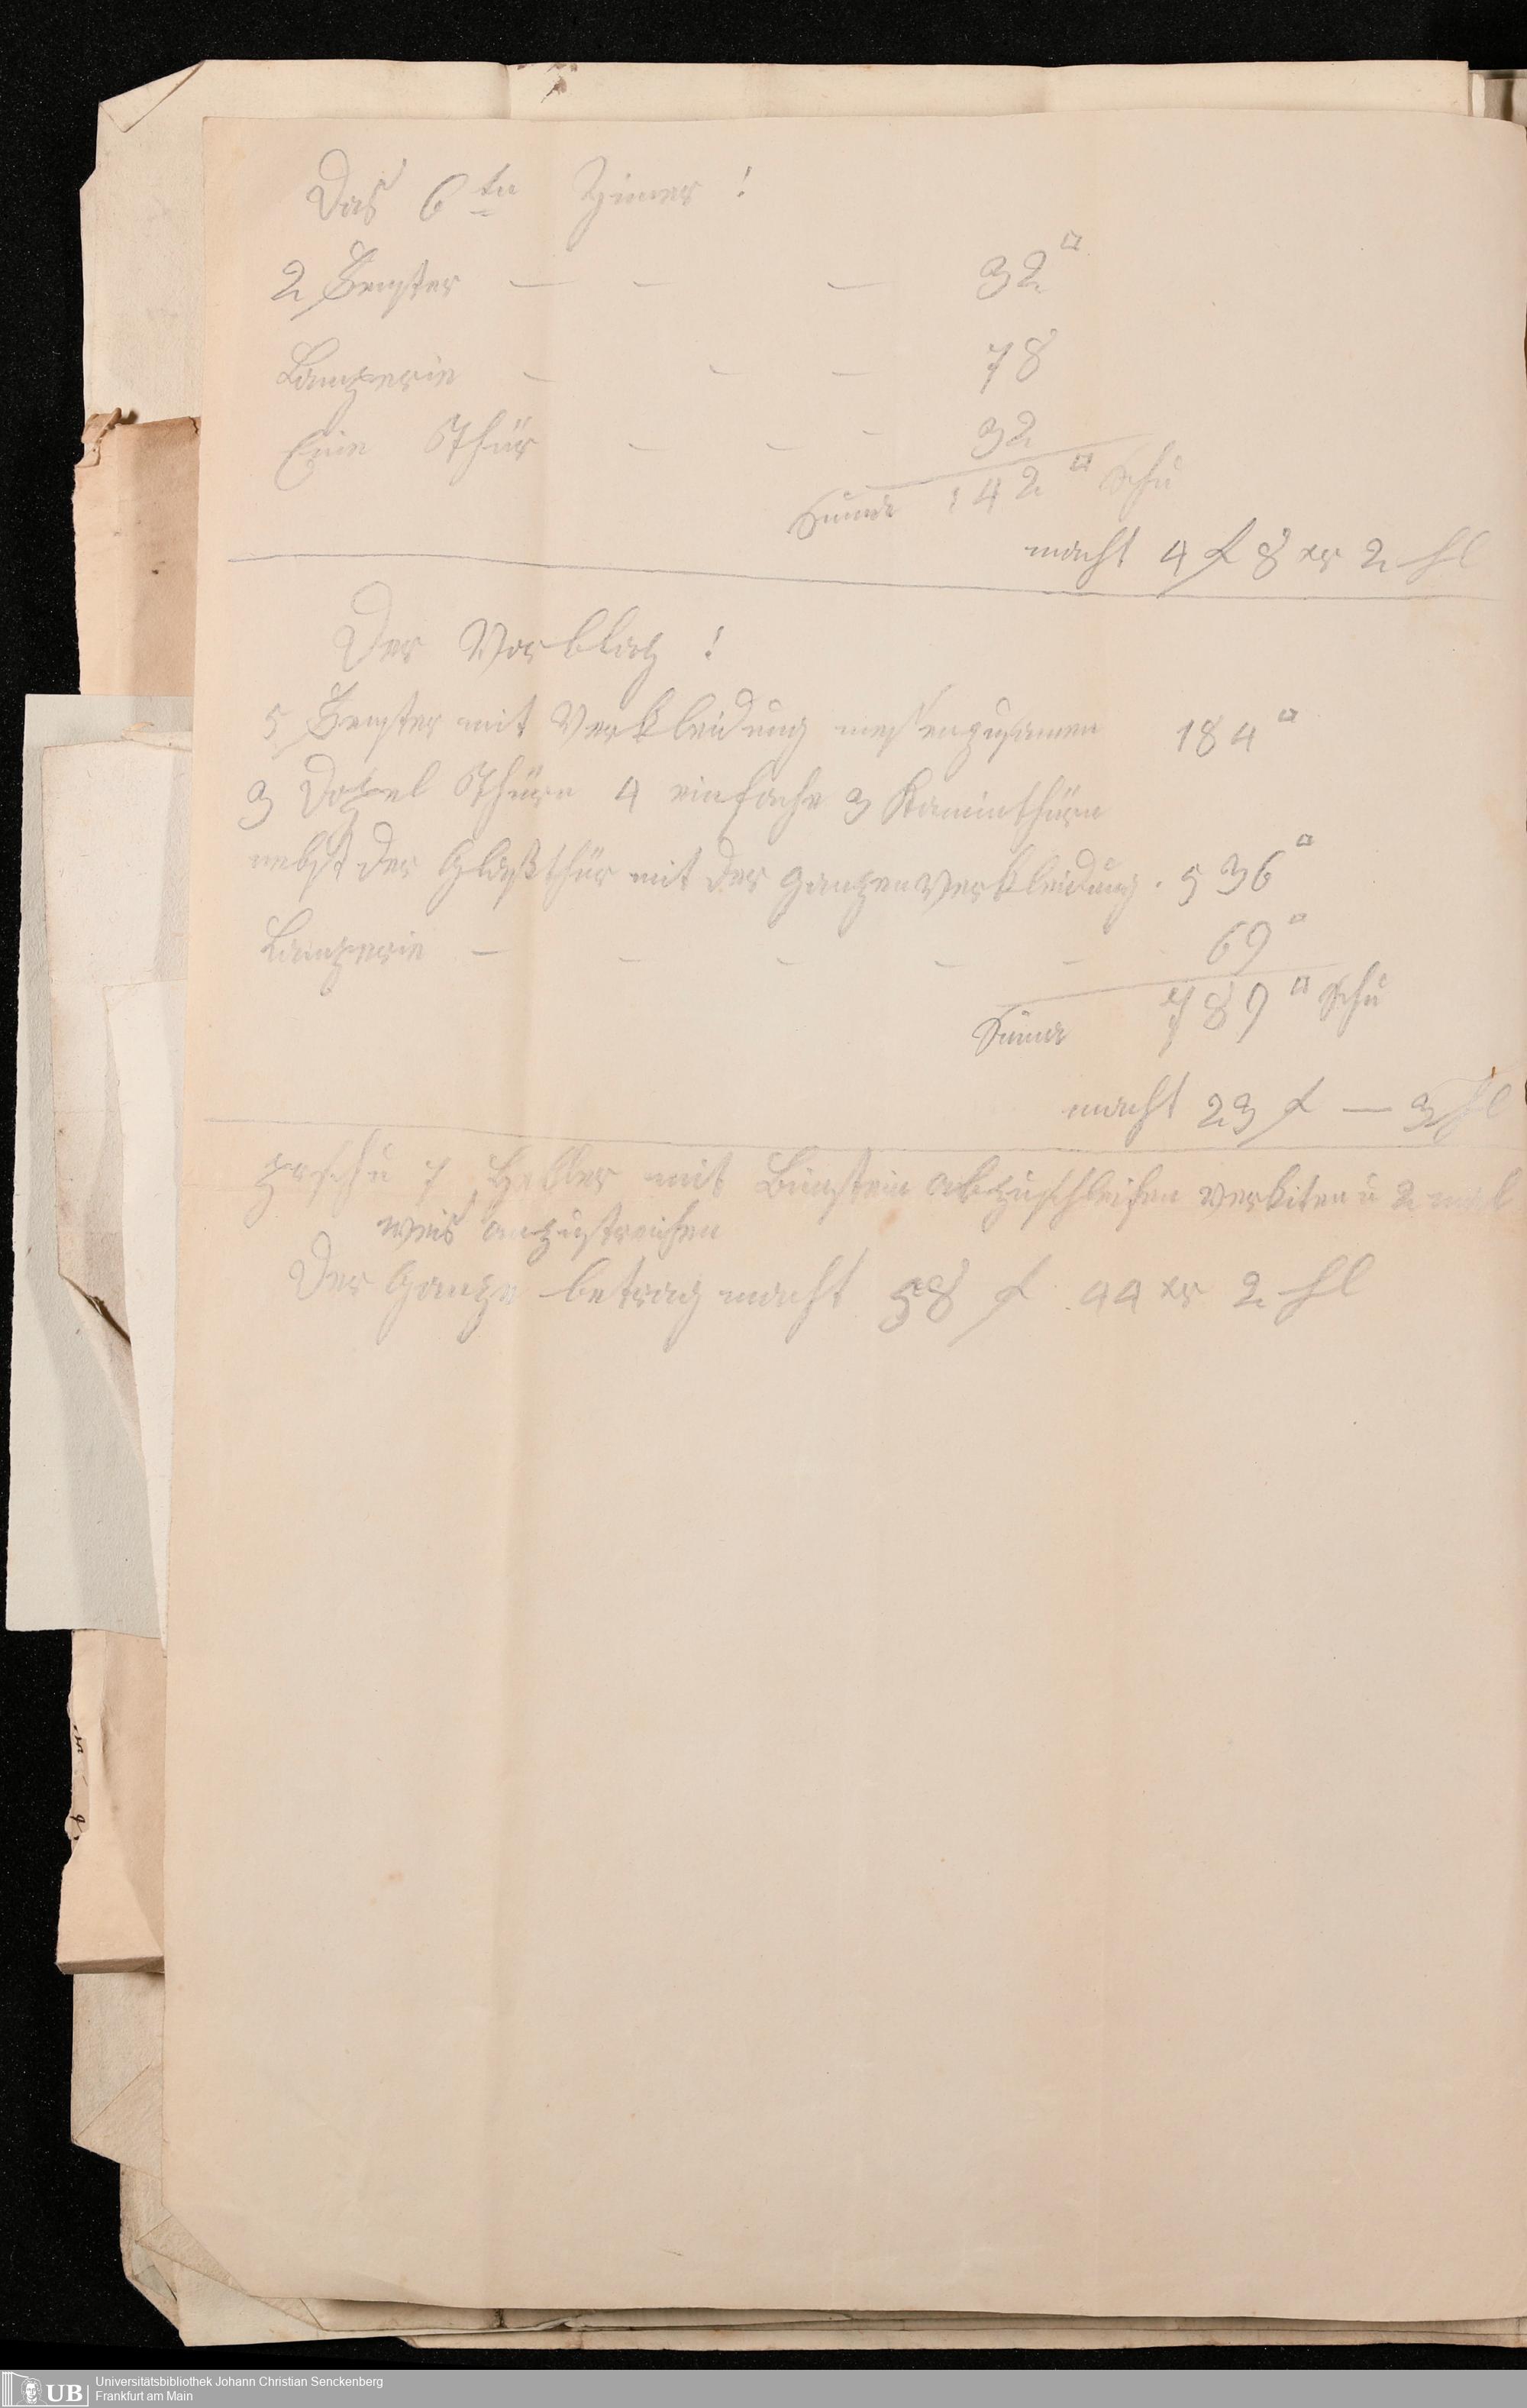 Das 6te Zimer!
2 Fenster — — — 32□
Lamperie — — — 78
Eine Thür — — — 32
Suma 142□ Schu
macht 4 f 8 xr 2 hl
Der Vorblatz!
5 Fenster mit Verkleidung messen zusamen 184□
3 Dopel Thüre 4 einfache 3 Kaminthüre
nebst der Glaßthür mit der ganzen Verkleidung. 536□
Lamperie — — — — — 69□
Suma 789□ Schu
macht 23 f — 3 hl
per schu 7 Heller mit Bimstein abzuschleifen verkiten u 2 mal
weis anzustreichen
Der Ganze betrag macht 58 f 44 xr 2 hl
UB Universitätsbibliothek Johann Christian Senckenberg
Frankfurt am Main